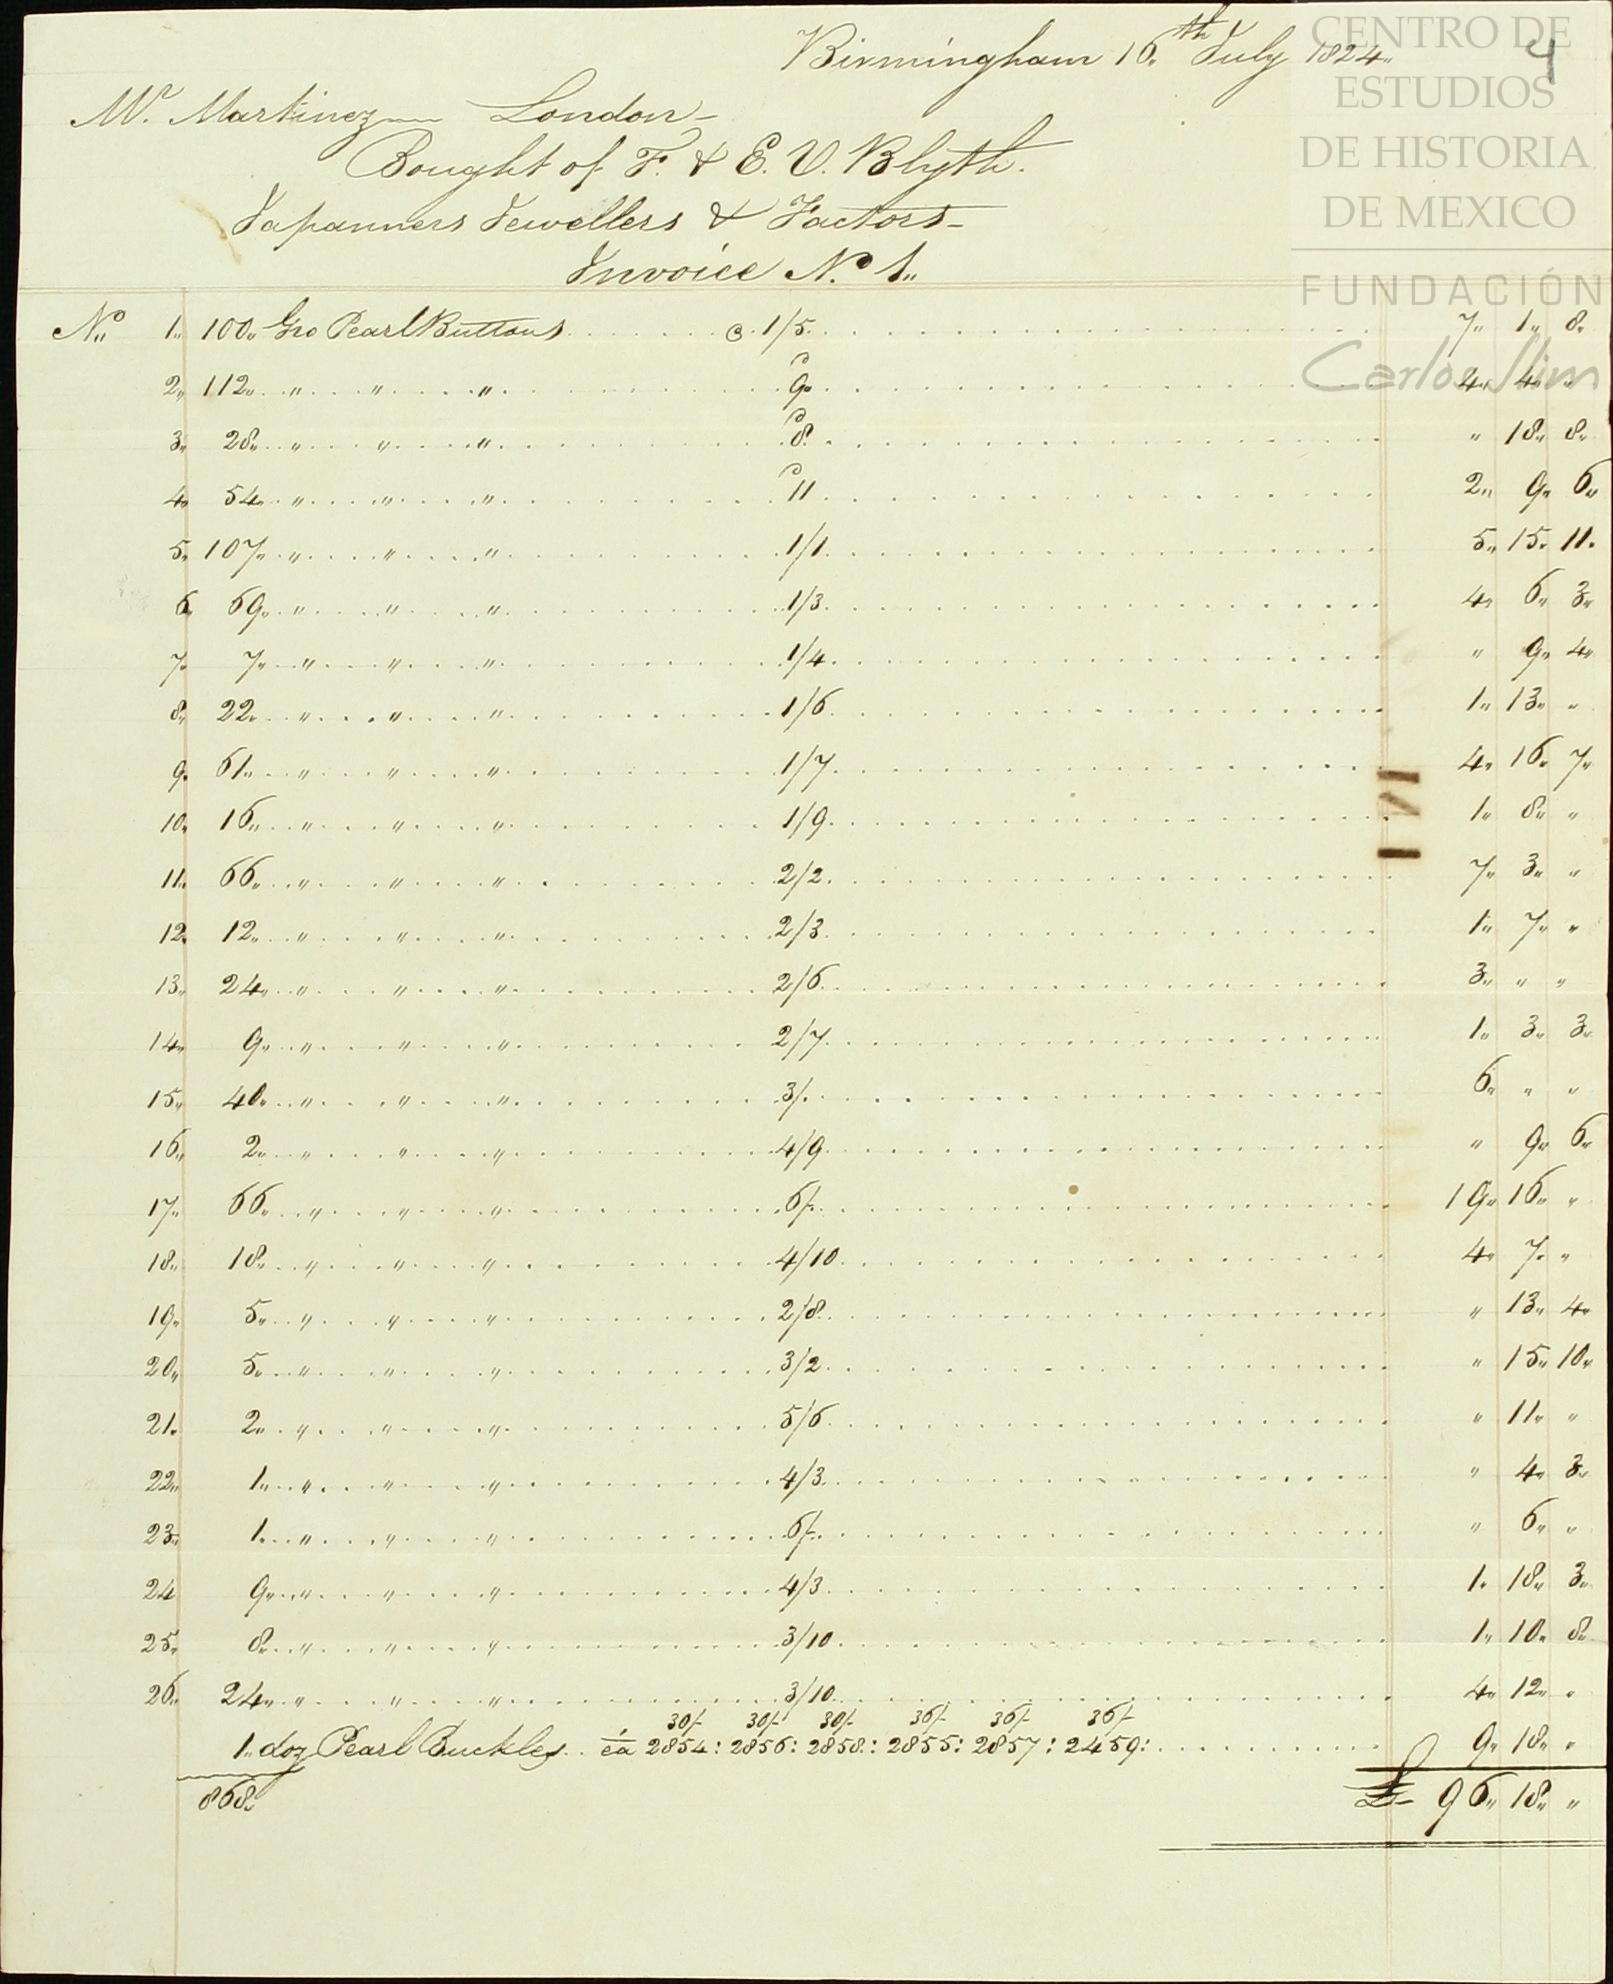 Birmingham 16th July 1824
4
Mr. Martinez London
Bought of F. & E. V. Blyth.
Japanners Jewellers & Factors
Invoice No. 1"
No" 1" 100" Gro Pearl Buttons @ 1/5 7" 1" 8"
2" 112" " " " 9d 4" 4" "
3" 28" " " " 8d " 18" 8"
4" 54" " " " 11d 2" 9" 6"
5" 107" " " " 1/1 5" 15" 11"
6" 69" " " " 1/3 4" 6" 3"
7" 7" " " " 1/4 " 9" 4"
8" 22" " " " 1/6 1" 13" "
9" 61" " " " 1/7 4" 16" 7"
10" 16" " " " 1/9 1" 8" "
11" 66" " " " 2/2 7" 3" "
12" 12" " " " 2/3 1" 7" "
13" 24" " " " 2/6 3" " "
14" 9" " " " 2/7 1" 3" 3"
15" 40" " " " 3/. 6" " "
16" 2" " " " 4/9 " 9" 6"
17" 66" " " " 6/- 19" 16" "
18" 18" " " " 4/10 4" 7" "
19" 5" " " " 2/8 " 13" 4"
20" 5" " " " 3/2 " 15" 10"
21" 2" " " " 5/6 " 11" "
22" 1" " " " 4/3 " 4" 3"
23" 1" " " " 6/- " 6" "
24 9" " " " 4/3 1" 18" 3"
25" 8" " " " 3/10 1" 10" 8"
26" 24" " " " 3/10 4" 12" "
30/- 30/- 30/- 36/- 36/- 36/-
1" doz Pearl Buckles éa 2854: 2856: 2858: 2855: 2857: 2459: 9" 18" "
868" £ 96" 18" "
CENTRO DE
ESTUDIOS
DE HISTORIA
DE MEXICO
FUNDACIÓN
Carlos Slim